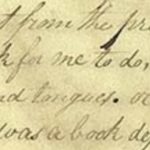 t from the pr
k for me to do,
nd tongues. or
was a book de